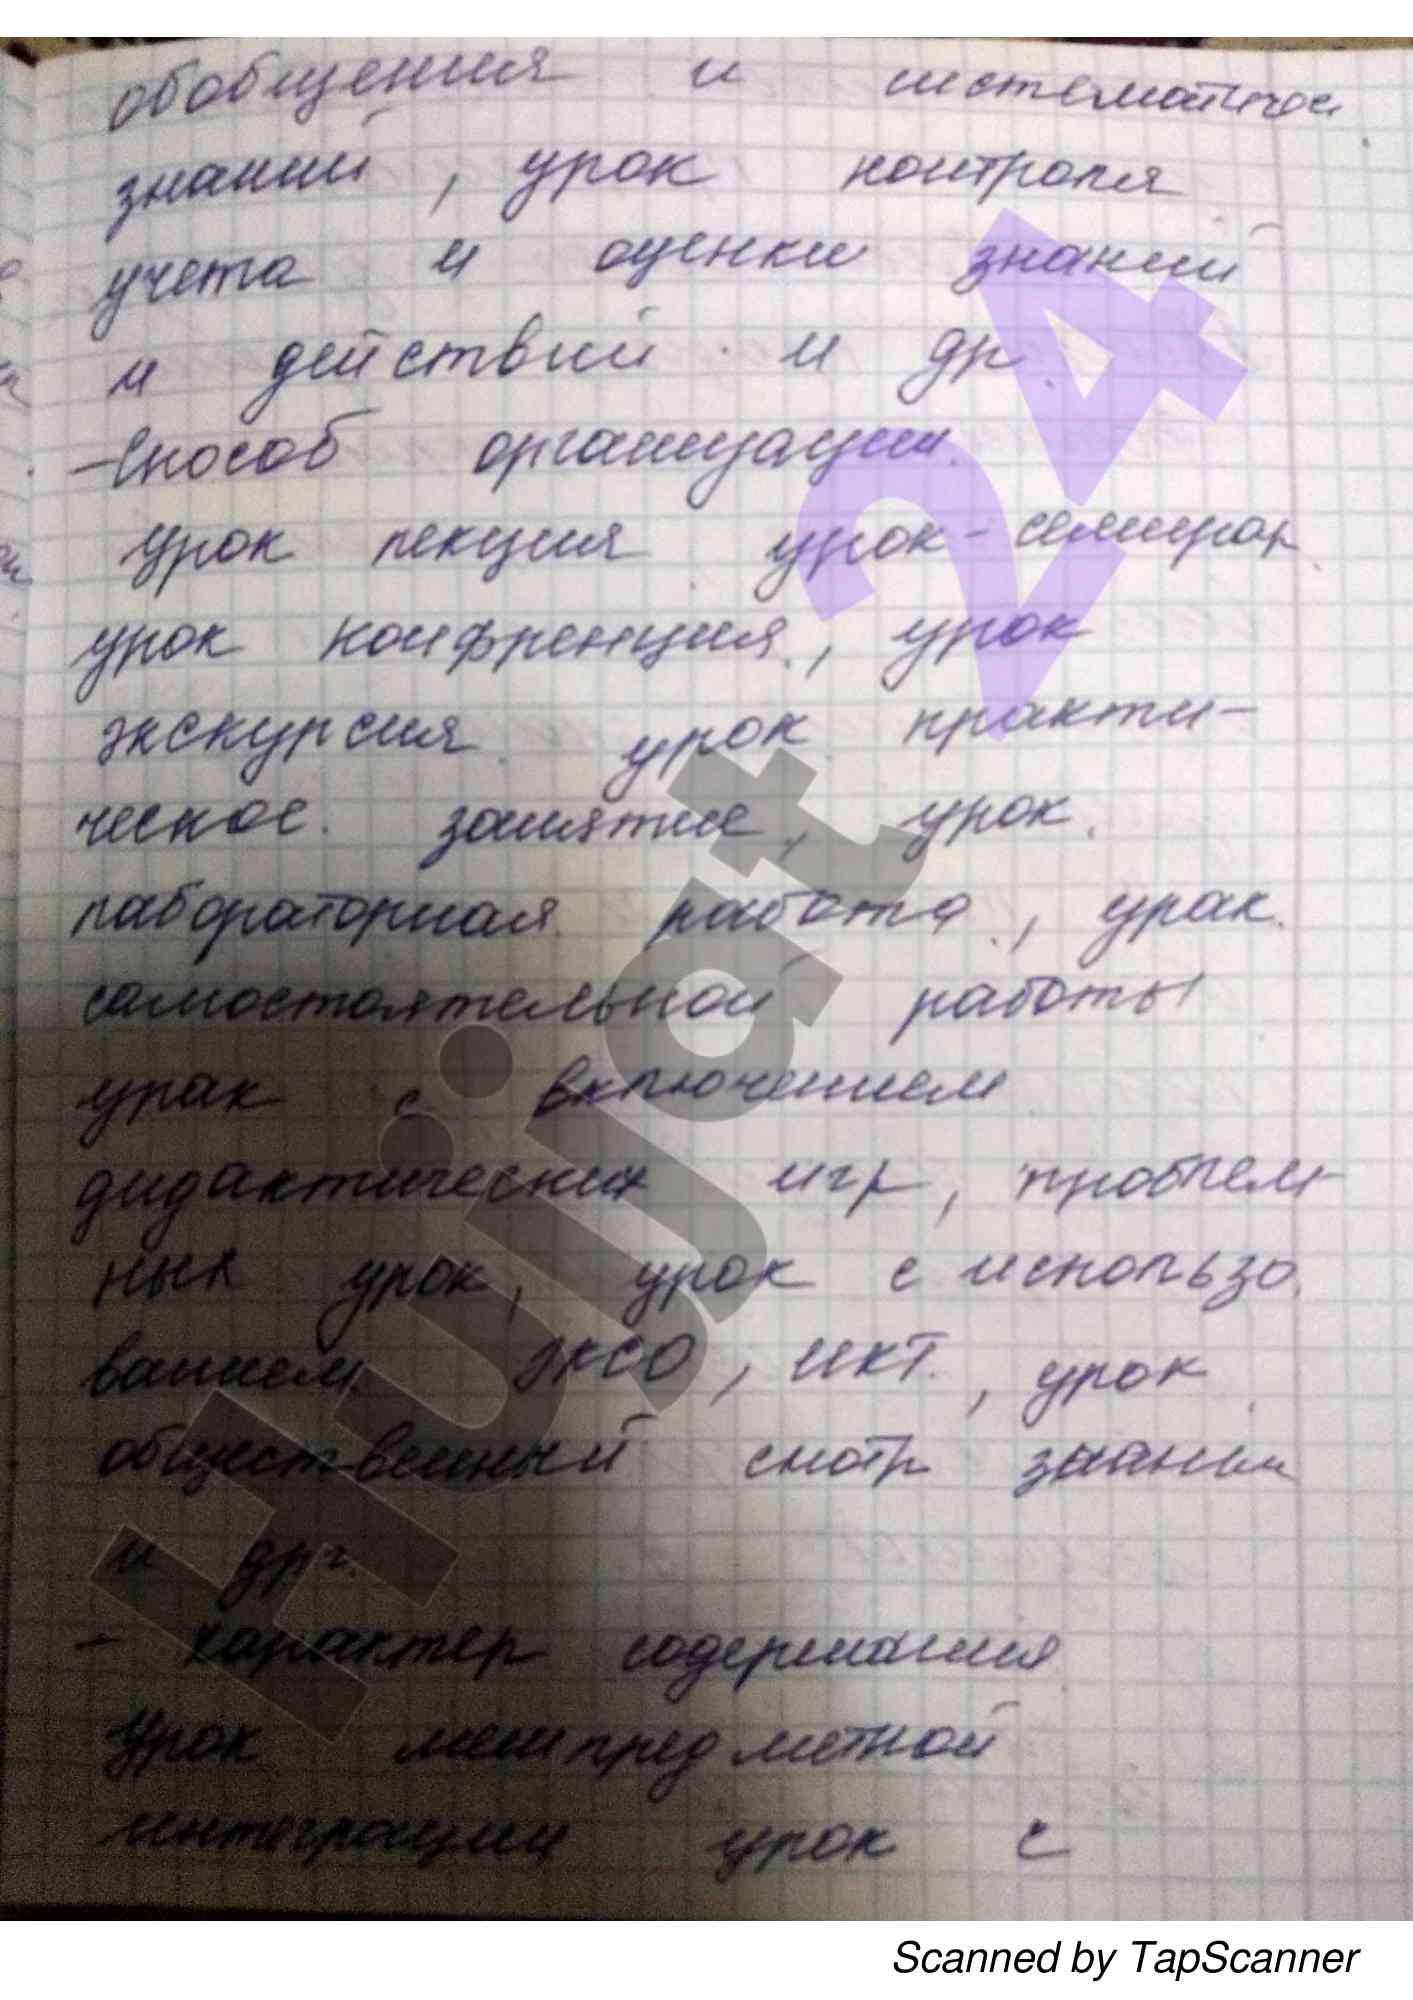 обобщения и
знаний, урок контроля
учета и оценки знаний
и действий и др.
- Способ организации.
Урок лекция урок-семинар
урок конференция, урок
экскурсия урок практи-
ческое занятие, урок
лабораторная работа, урок
самостоятельной работы
урок с включением
дидактических игр, проблем-
ных урок, урок с использо
ванием ЭКСО, ИКТ, урок
общественный смотр знаний
и др.
- характер содержания
Урок межпредметной
интеграции урок с
Hujjat 24
Scanned by TapScanner